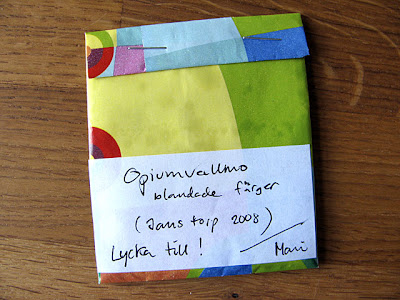 Opiumvallmo
blandade färger
(Jans torp 2008)
Lycka till!
/Mari